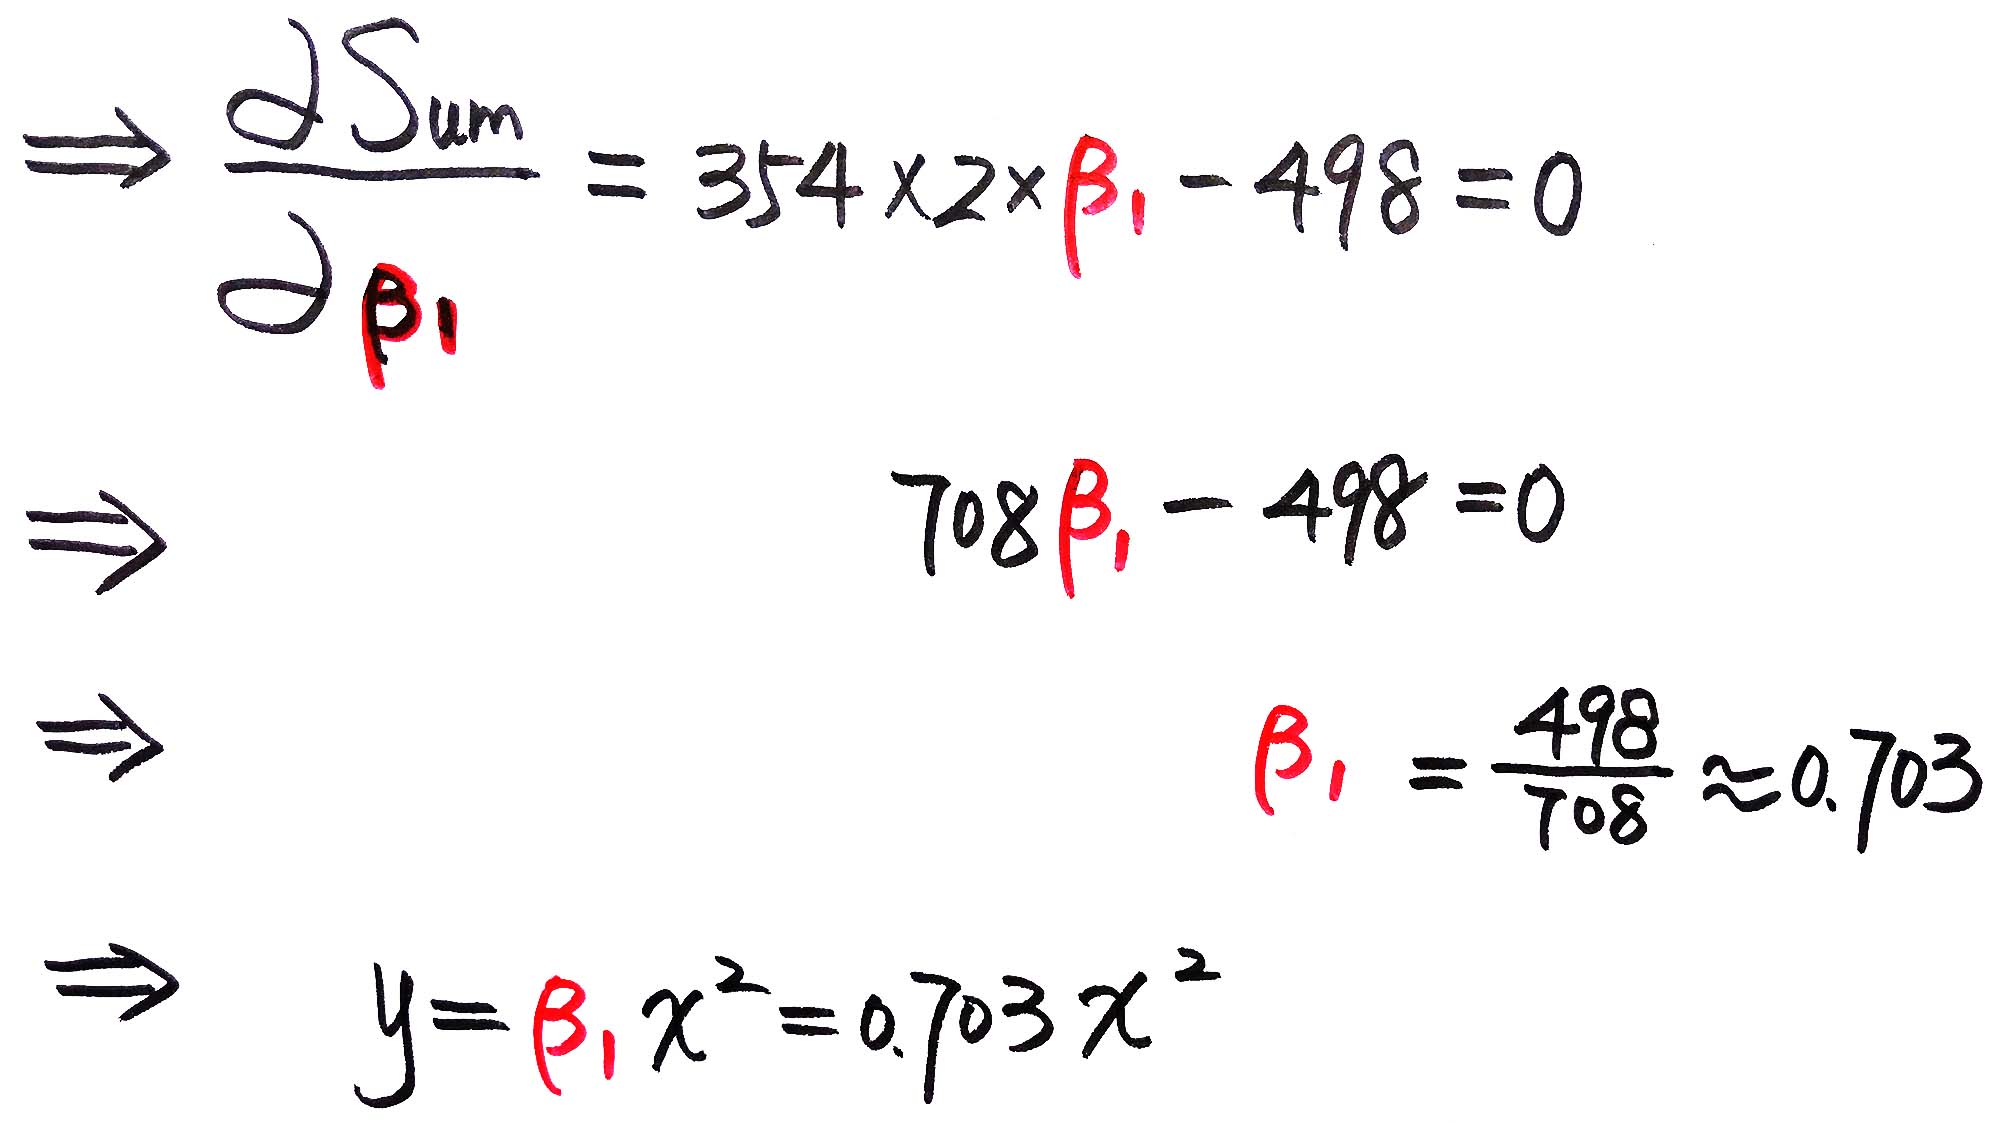 ⇒ ∂Sum/∂β₁ = 354 × 2 × β₁ − 498 = 0
⇒ 708β₁ − 498 = 0
⇒ β₁ = 498/708 ≈ 0.703
⇒ y = β₁x² = 0.703x²